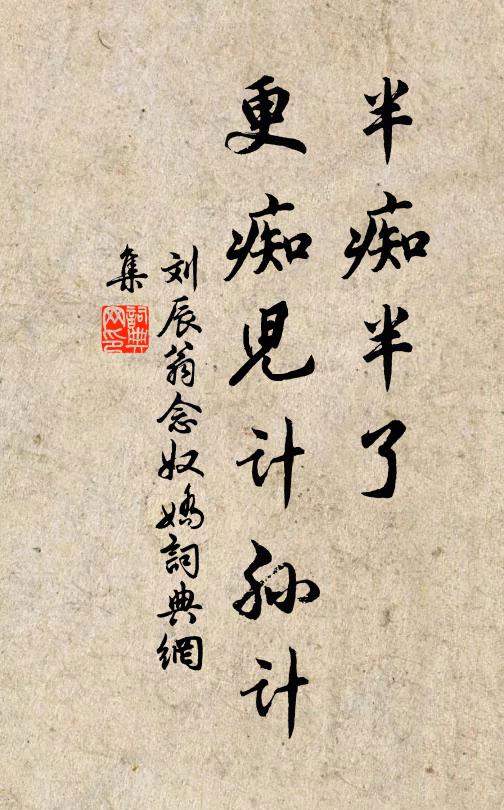 半痴半了
更痴児计孙计
刘辰翁念奴娇詞典網
集
詞典
网印